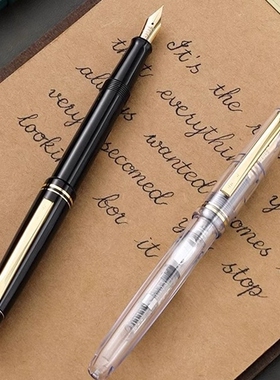 It's the
that everything
always wanted
very secomed you
looking for it
stop